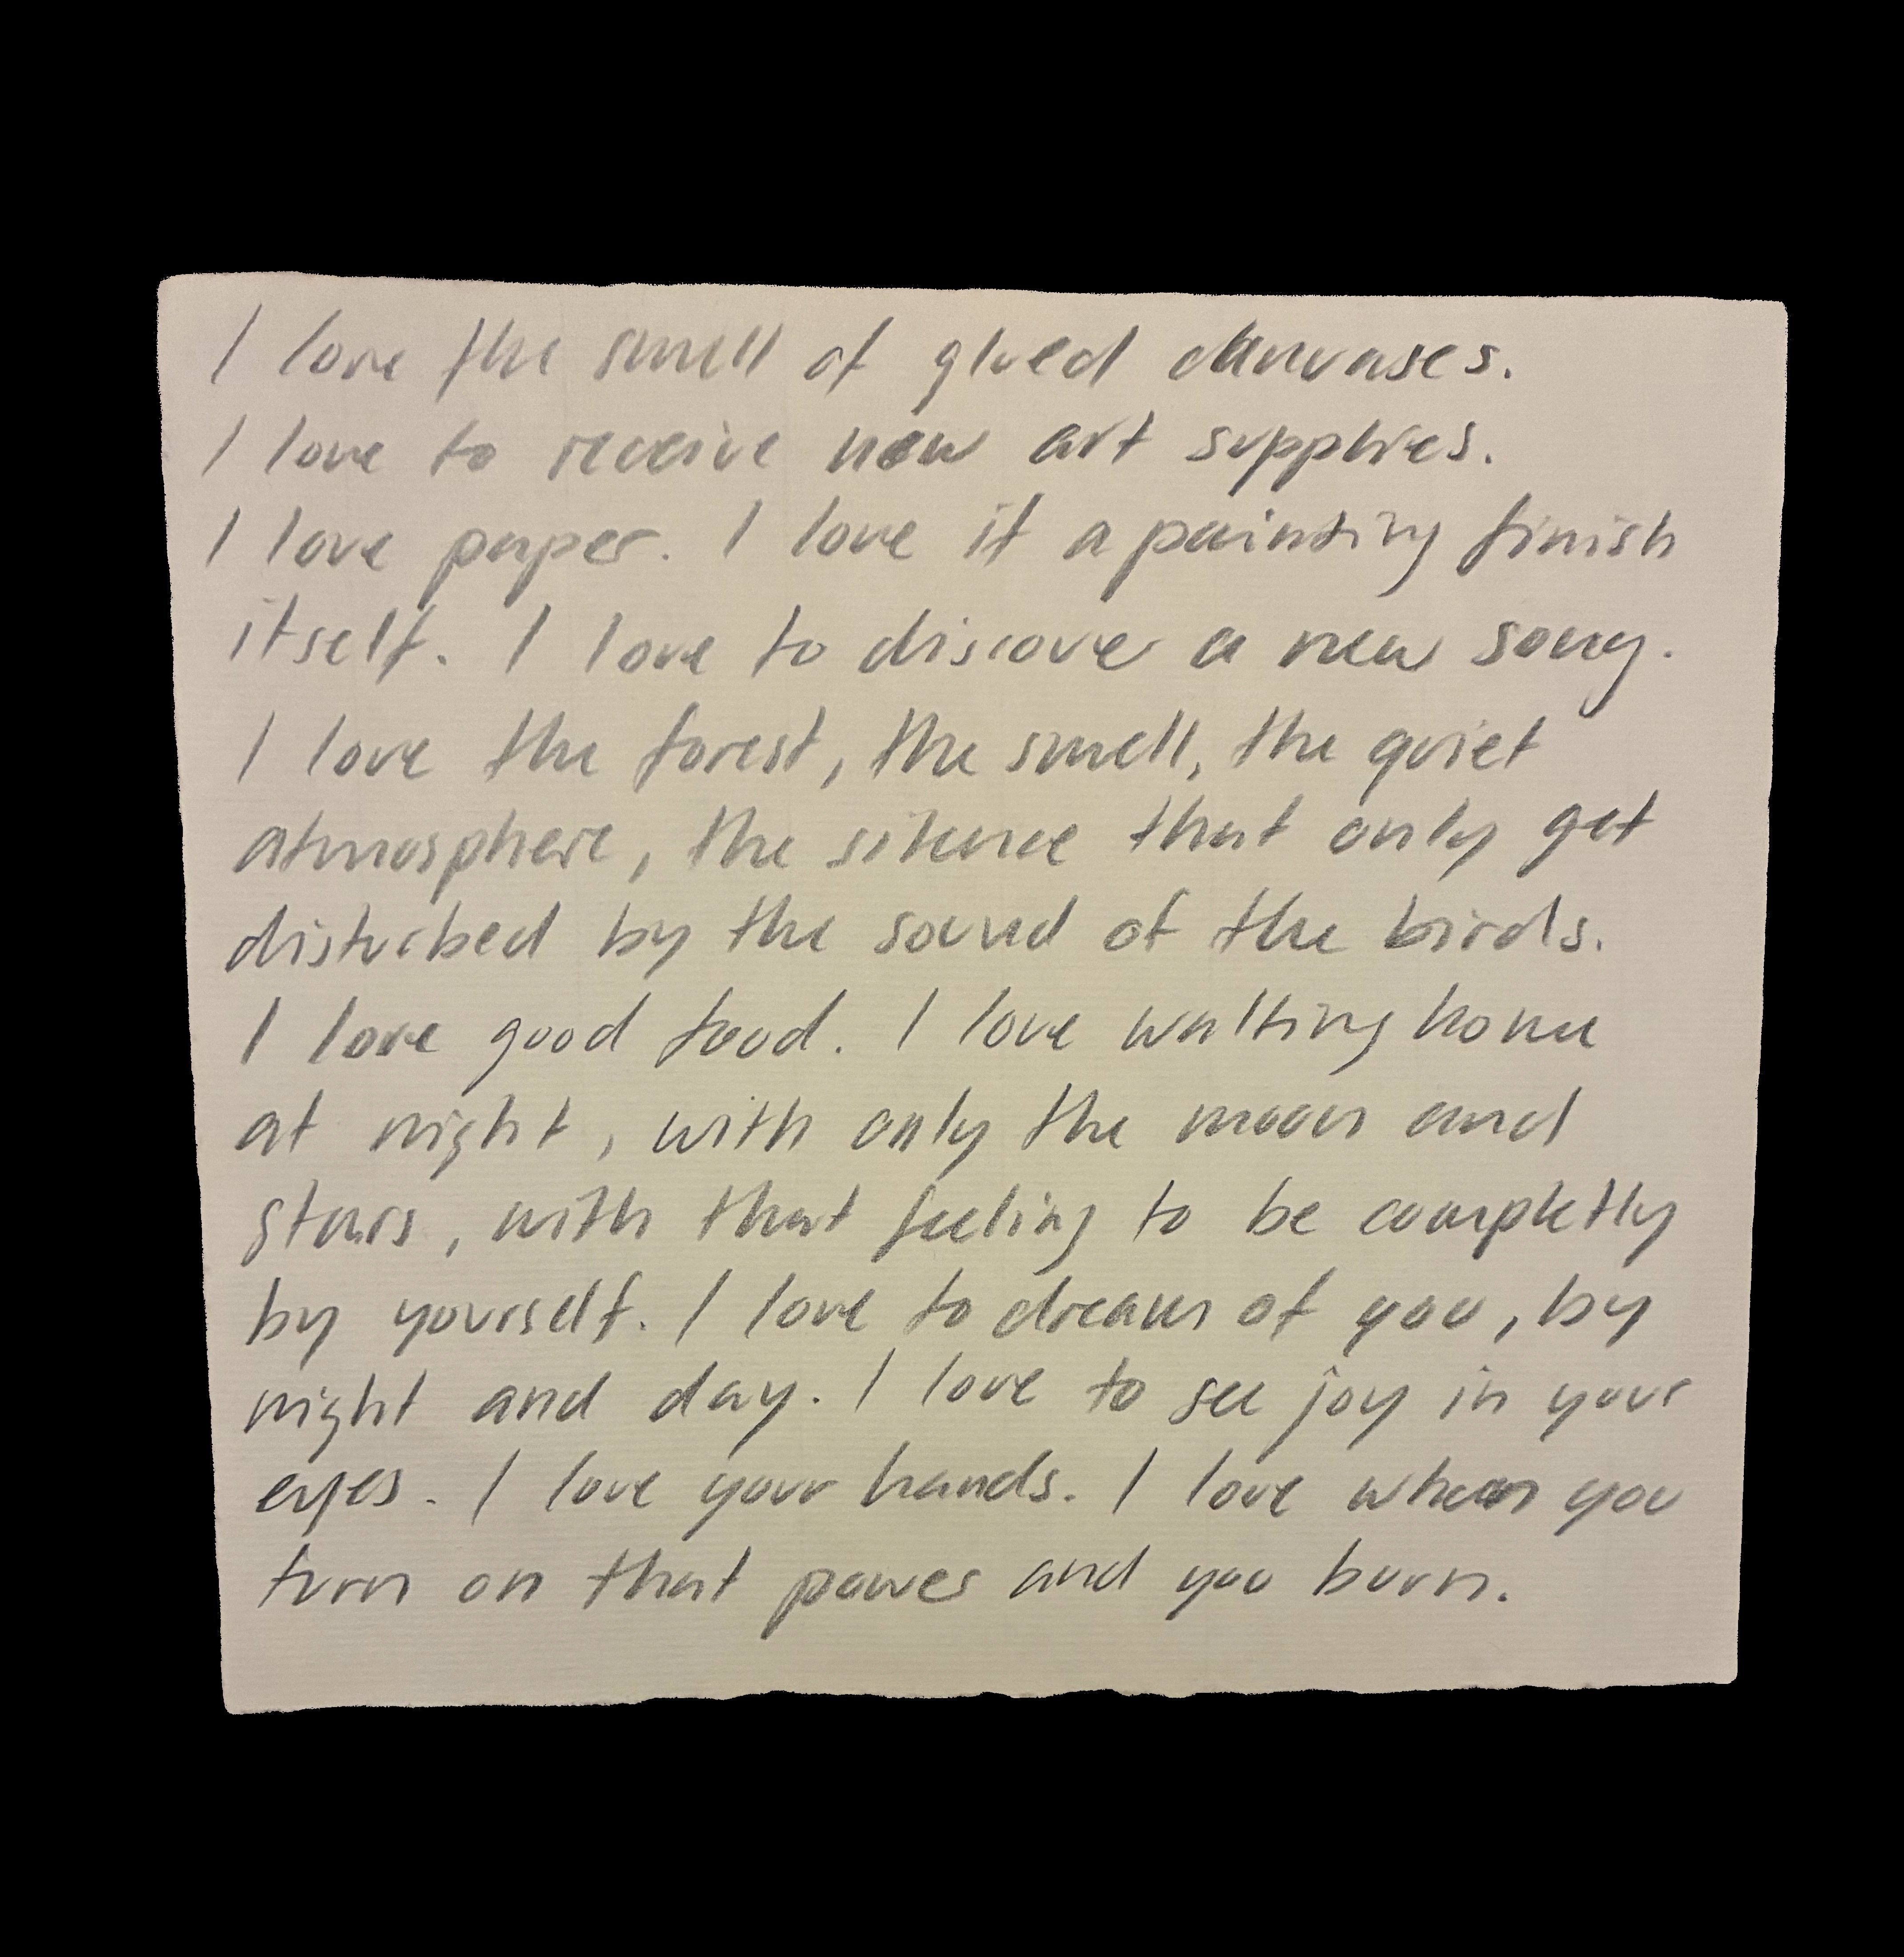 I love the smell of glued canvases.
I love to receive new art supplies.
I love paper. I love if a painting finish
itself. I love to discover a new song.
I love the forest, the smell, the quiet
atmosphere, the silence that only get
disturbed by the sound of the birds.
I love good food. I love walking home
at night, with only the moon and
stars, with that feeling to be completly
by yourself. I love to dream of you, by
night and day. I love to see joy in your
eyes. I love your hands. I love when you
turn on that power and you burn.